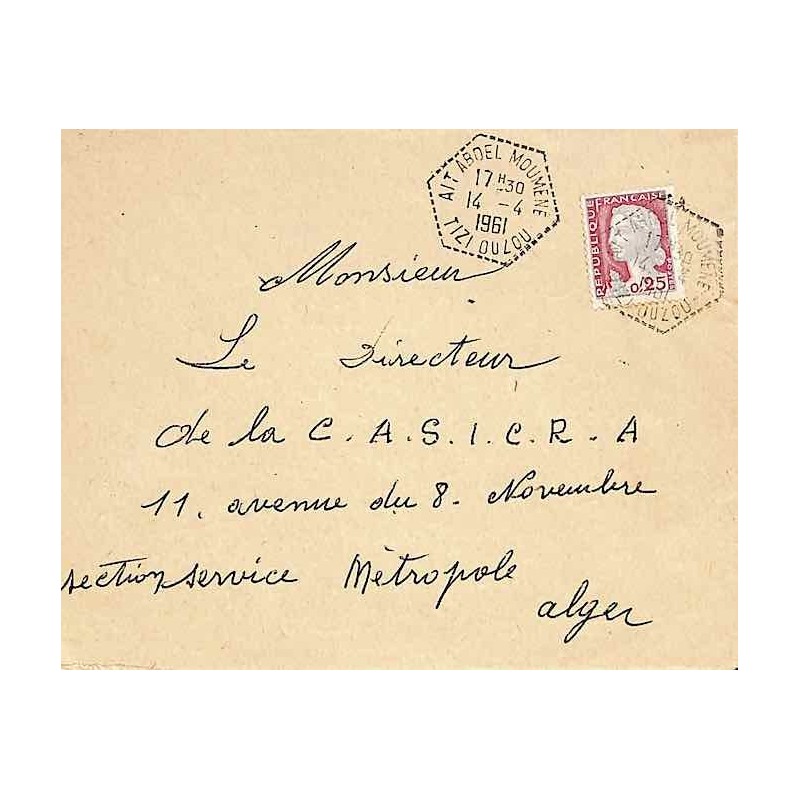 AIT ABDEL MOUMENE
17 H 30
14 - 4
1961
TIZI OUZOU
REPUBLIQUE FRANÇAISE
0,25
MOUMENE
OUZOU
Monsieur
Le Directeur
de la C.A.S.I.C.R.A
11, avenue du 8. Novembre
section service Métropole
alger